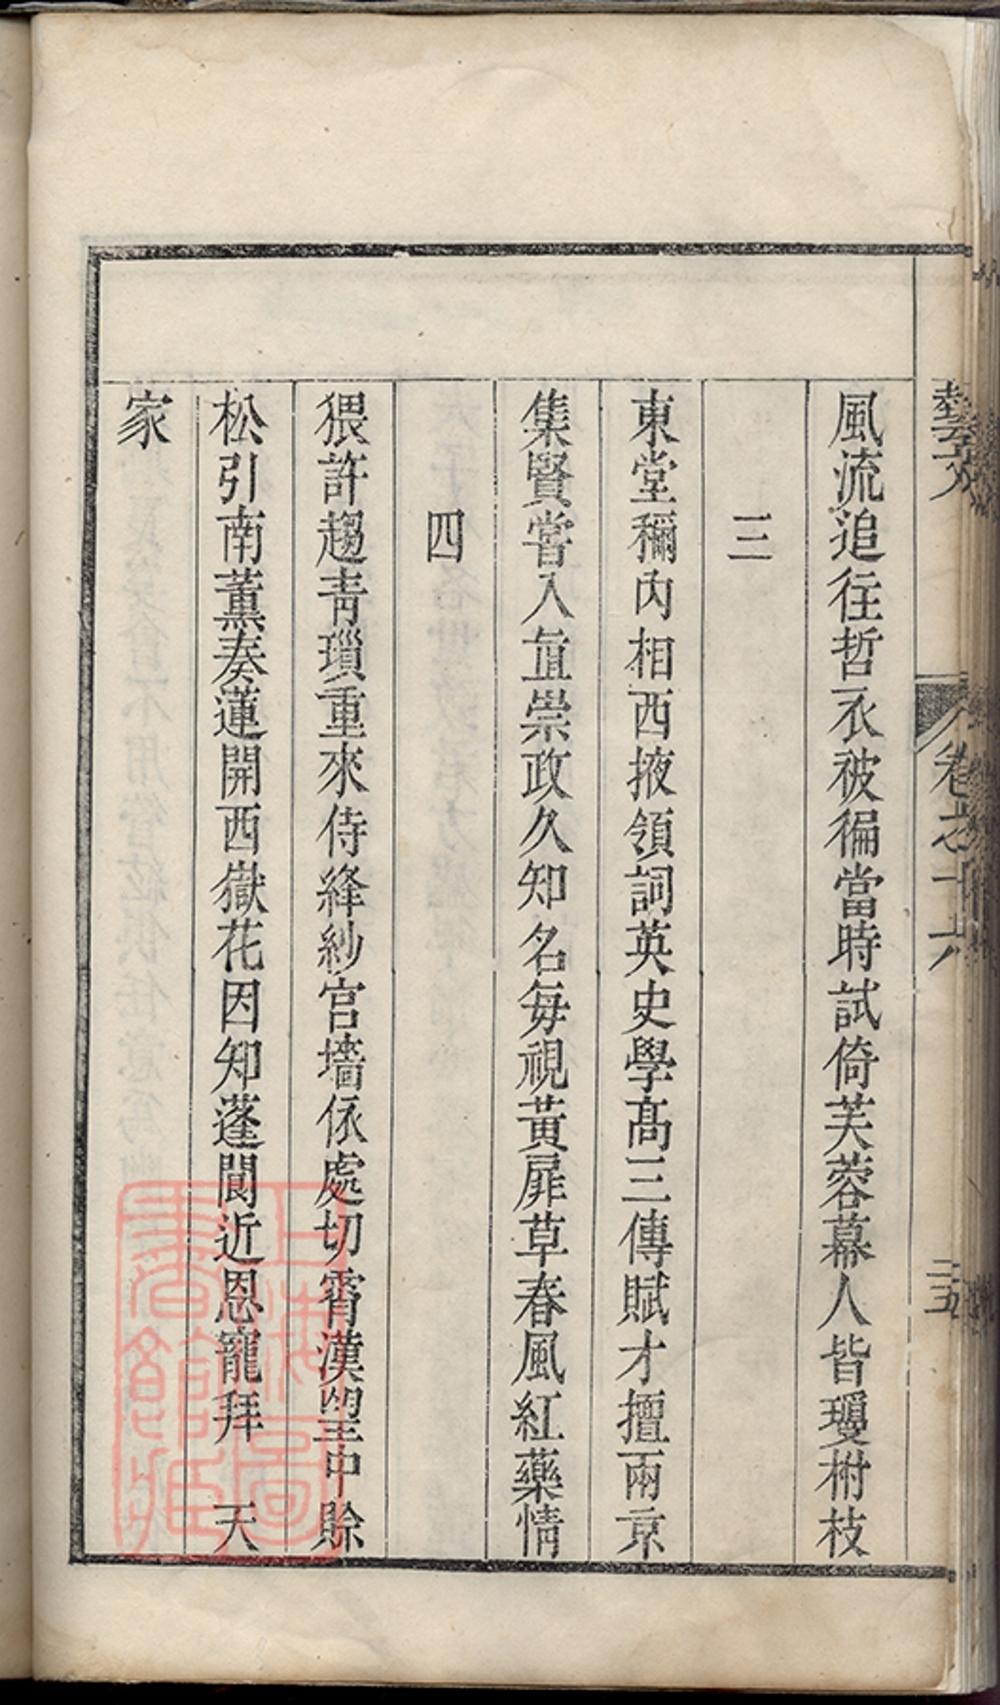 風流追往哲衣被徧當時試倚芙蓉幕人皆瓊柎枝
三
東堂稱內相西掖領詞英史學高三傳賦才擅兩京
集賢嘗入直崇政久知名每視黃扉草春風紅藥情
四
猥許趨青瑣重來侍絳紗宮墻依處切霄漢望中賖
松引南薰奏蓮開西嶽花因知蓬閬近恩寵拜　天
家
卷之十六
三五
上海圖書館藏